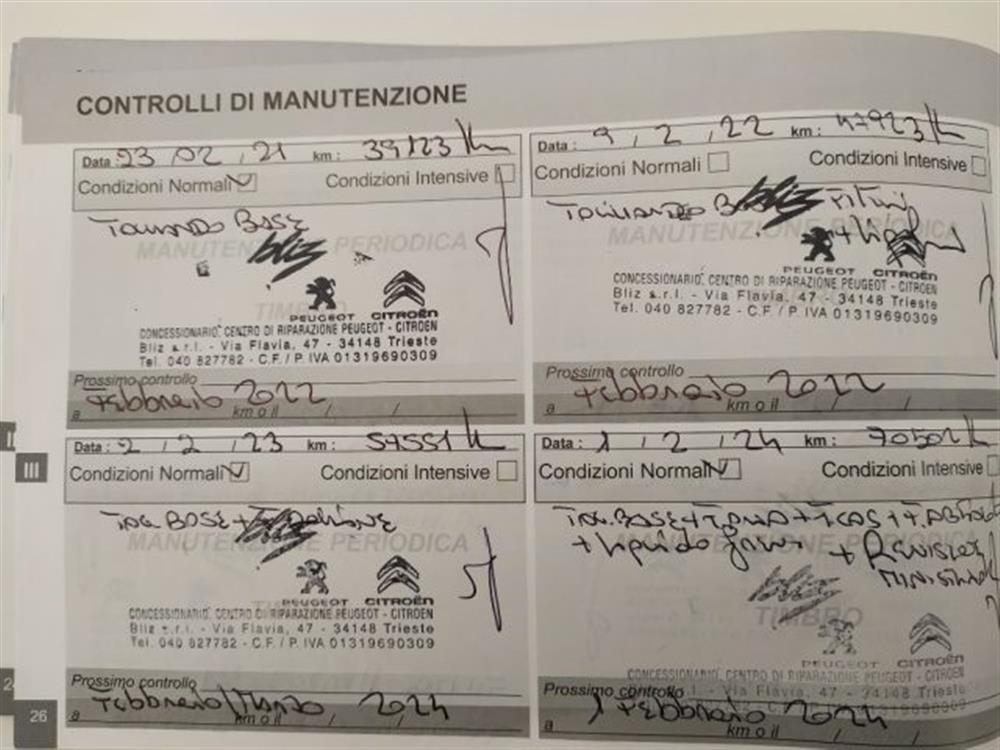 CONTROLLI DI MANUTENZIONE
Data : 23 / 02 / 21 km : 39123 K
Condizioni Normali Condizioni Intensive
BASE
bliz
MANUTENZIONE PERIODICA
TIMBRO
PEUGEOT CITROËN
CONCESSIONARIO. CENTRO DI RIPARAZIONE PEUGEOT - CITROËN
Bliz s.r.l. - Via Flavia, 47 - 34148 Trieste
Tel. 040 827782 - C.F. / P. IVA 01319690309
Prossimo controllo
a Febbraio 2022
km o il / /
Data : 9 / 2 / 22 km : 47923 K
Condizioni Normali Condizioni Intensive
Tagliando
bliz
MANUTENZIONE PERIODICA
PEUGEOT CITROËN
CONCESSIONARIO. CENTRO DI RIPARAZIONE PEUGEOT - CITROËN
Bliz s.r.l. - Via Flavia, 47 - 34148 Trieste
Tel. 040 827782 - C.F. / P. IVA 01319690309
Prossimo controllo
a Febbraio 2022
km o il / /
Data : 2 / 2 / 23 km : 57551 K
Condizioni Normali Condizioni Intensive
Tag. BASE +
MANUTENZIONE PERIODICA
PEUGEOT CITROËN
CONCESSIONARIO. CENTRO DI RIPARAZIONE PEUGEOT - CITROËN
Bliz s.r.l. - Via Flavia, 47 - 34148 Trieste
Tel. 040 827782 - C.F. / P. IVA 01319690309
Prossimo controllo
a Febbraio / Marzo 2024
km o il / /
Data : 1 / 2 / 24 km : 70502 K
Condizioni Normali Condizioni Intensive
Tag. BASE +
+ liquido freni +
MANUTENZIONE PERIODICA
bliz
TIMBRO
PEUGEOT CITROËN
CONCESSIONARIO. CENTRO DI RIPARAZIONE PEUGEOT - CITROËN
Prossimo controllo
Via Flavia, 47 - 34148 Trieste
a Febbraio 2024
km o il / /
III
26